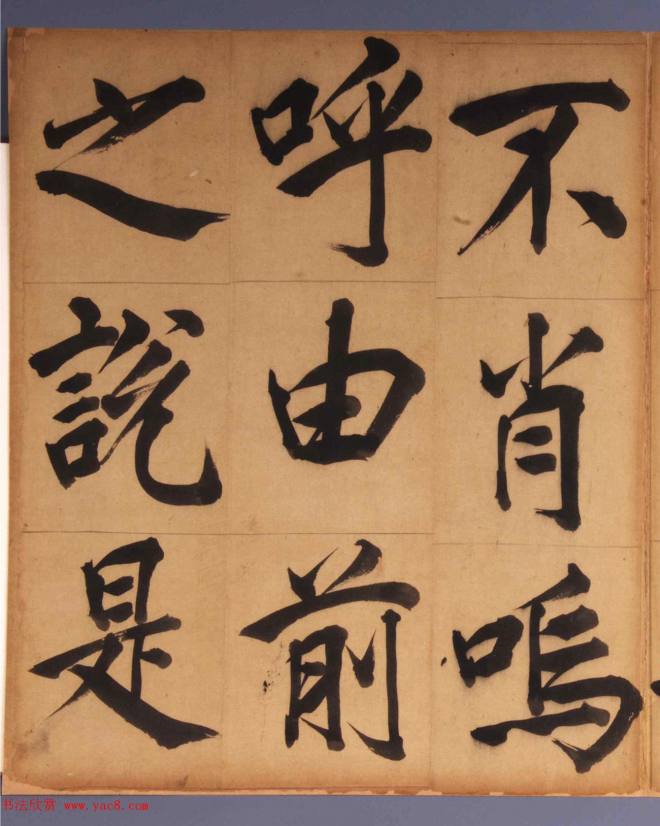 不肖嗚
呼由前
之說是
书法欣赏 www.yac8.com